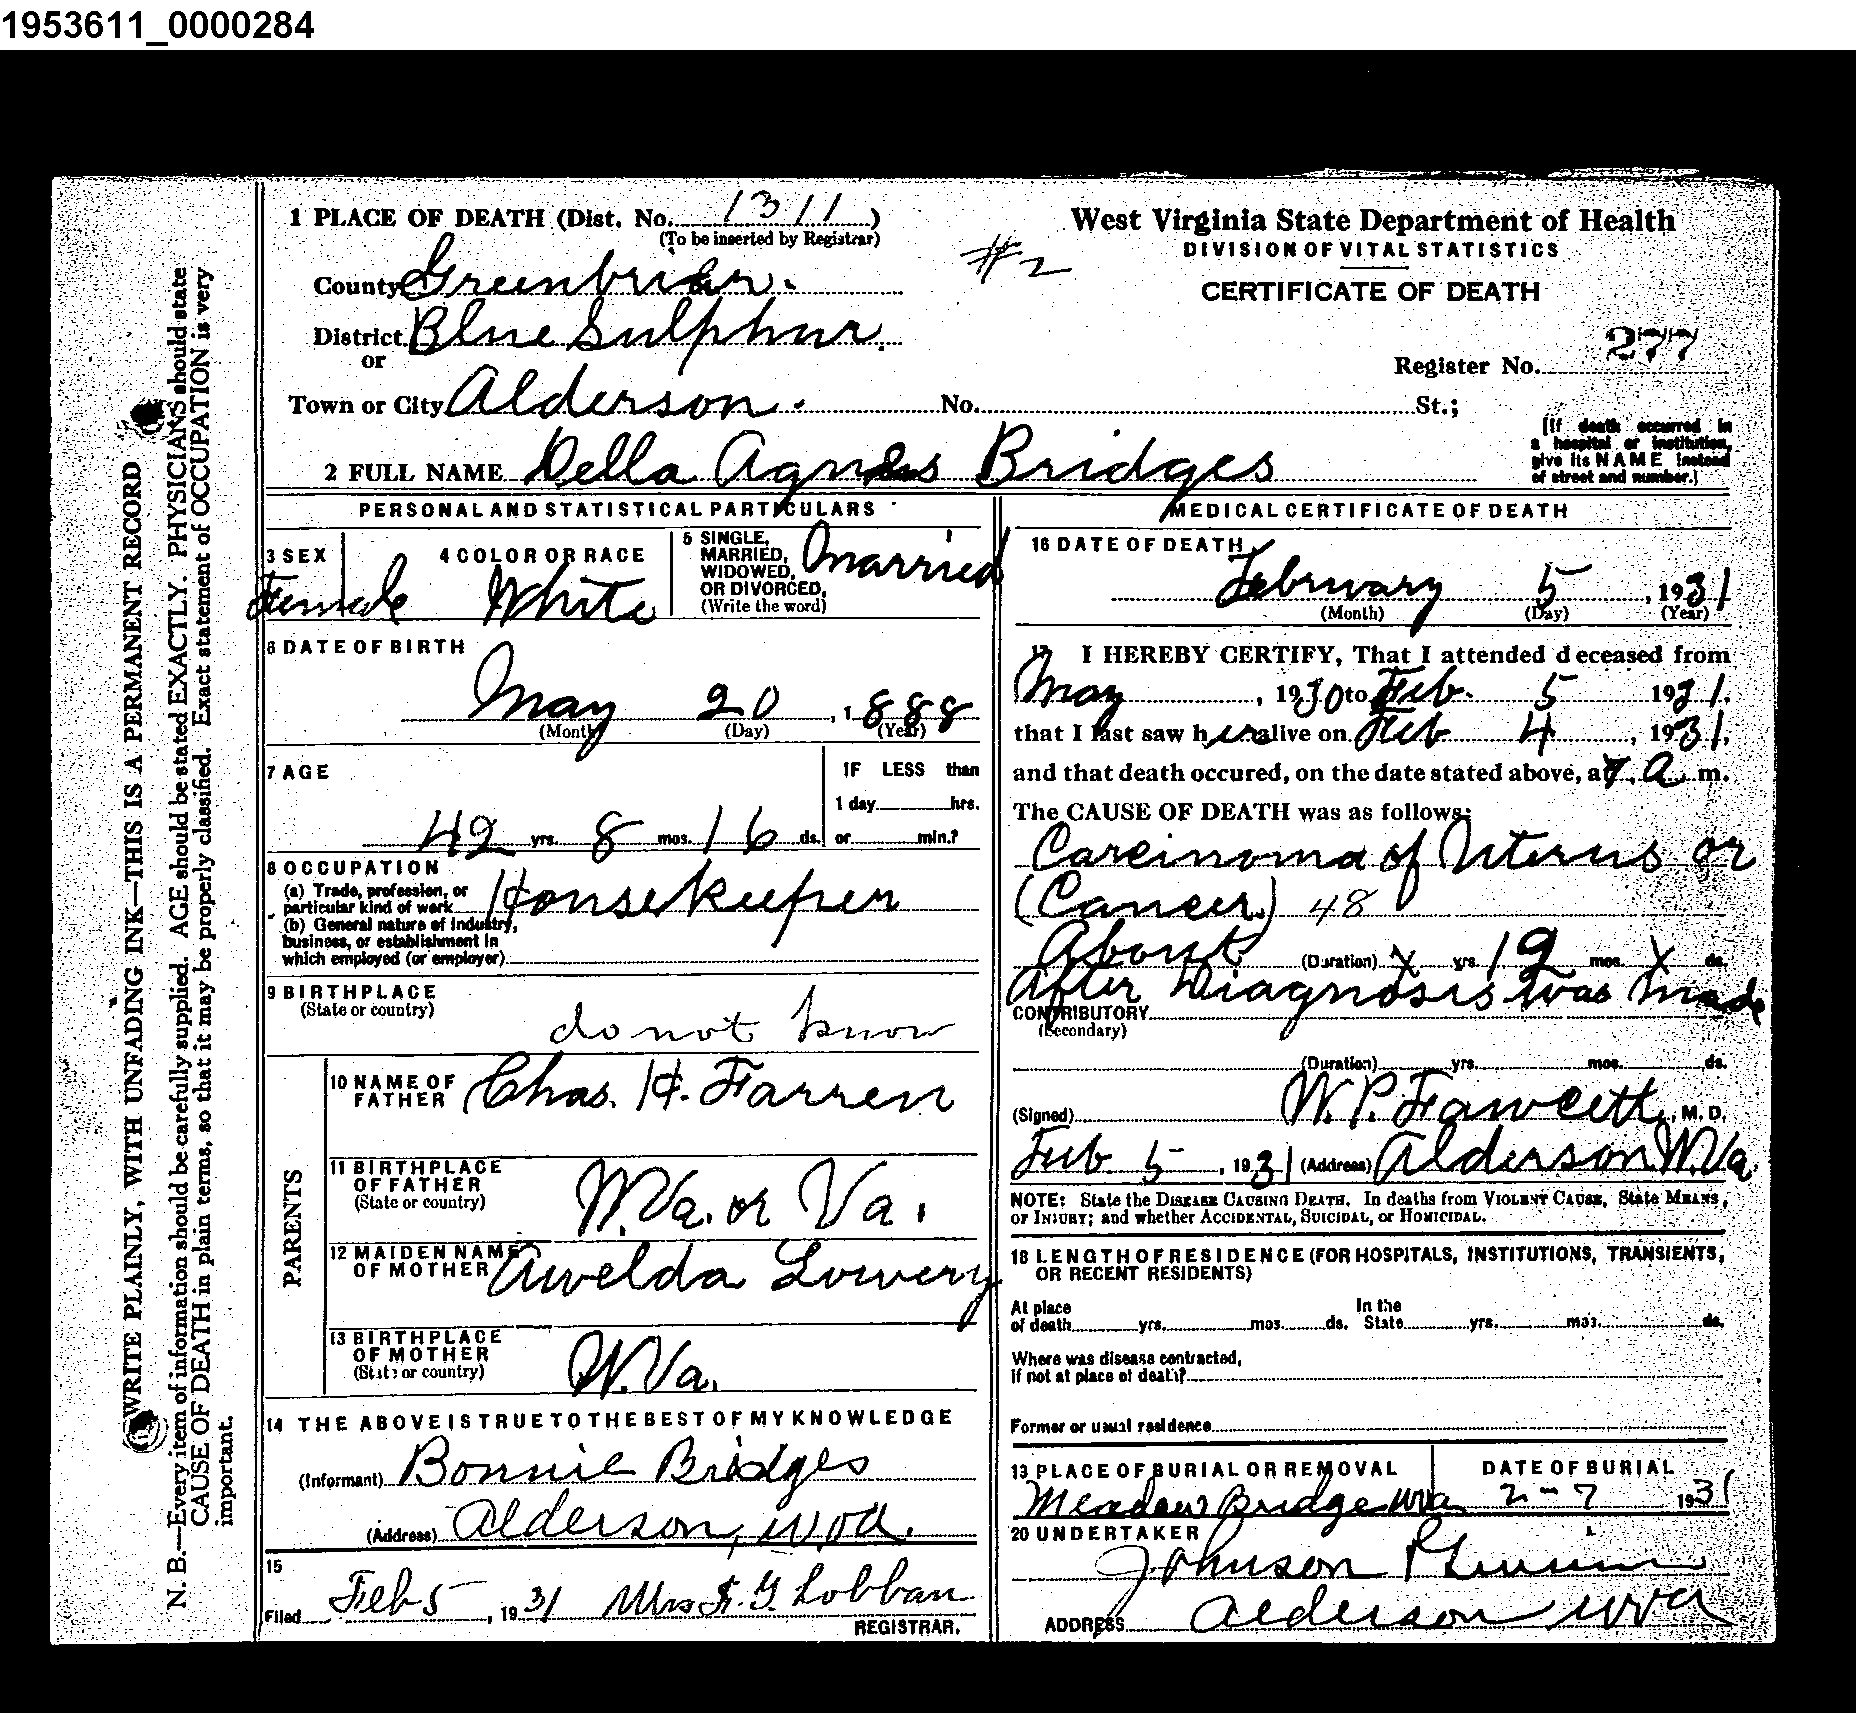 1953611_0000284
1 PLACE OF DEATH (Dist. No. 1311)
(To be inserted by Registrar)
County Greenbrier.
District Blue Sulphur.
or
Town or City Alderson. No. St.;
#2
West Virginia State Department of Health
DIVISION OF VITAL STATISTICS
CERTIFICATE OF DEATH
Register No. 277
[If death occurred in
a hospital or institution,
give its NAME instead
of street and number.]
2 FULL NAME Della Agnes Bridges
PERSONAL AND STATISTICAL PARTICULARS
3 SEX
Female
4 COLOR OR RACE
White
5 SINGLE,
MARRIED,
WIDOWED,
OR DIVORCED,
(Write the word)
Married
6 DATE OF BIRTH
May 20, 1888
(Month) (Day) (Year)
7 AGE
42 yrs. 8 mos. 16 ds.
IF LESS than
1 day hrs.
or min.?
8 OCCUPATION
(a) Trade, profession, or
particular kind of work Housekeeper
(b) General nature of industry,
business, or establishment in
which employed (or employer)
9 BIRTHPLACE
(State or country)
do not know
PARENTS
10 NAME OF
FATHER Chas. H. Farren
11 BIRTHPLACE
OF FATHER
(State or country)
W.Va. or Va.
12 MAIDEN NAME
OF MOTHER Awelda Lowery
13 BIRTHPLACE
OF MOTHER
(State or country)
W.Va.
14 THE ABOVE IS TRUE TO THE BEST OF MY KNOWLEDGE
(Informant) Bonnie Bridges
(Address) Alderson, W.Va.
15
Filed Feb 5, 1931 Mrs Lobban
REGISTRAR.
MEDICAL CERTIFICATE OF DEATH
16 DATE OF DEATH
February 5, 1931
(Month) (Day) (Year)
17 I HEREBY CERTIFY, That I attended deceased from
May, 1930 to Feb. 5 1931.
that I last saw her alive on Feb 4, 1931,
and that death occured, on the date stated above, at 7. a. m.
The CAUSE OF DEATH was as follows:
Carcinoma of Uterus or
(Cancer) 48
About (Duration) x yrs. 12 mos. x ds.
After Diagnosis was made
CONTRIBUTORY
(Secondary)
(Duration) yrs. mos. ds.
(Signed) W. P. Fawcett, M. D.
Feb. 5, 1931 (Address) Alderson W.Va.
NOTE: State the DISEASE CAUSING DEATH. In deaths from VIOLENT CAUSE, State MEANS,
or INJURY; and whether ACCIDENTAL, SUICIDAL, or HOMICIDAL.
18 LENGTH OF RESIDENCE (FOR HOSPITALS, INSTITUTIONS, TRANSIENTS,
OR RECENT RESIDENTS)
At place
of death yrs. mos. ds.
In the
State yrs. mos. ds.
Where was disease contracted,
If not at place of death?
Former or usual residence
13 PLACE OF BURIAL OR REMOVAL
Meadow Bridge W Va
DATE OF BURIAL
2-7 1931
20 UNDERTAKER
Johnson
ADDRESS Alderson W Va
WRITE PLAINLY, WITH UNFADING INK—THIS IS A PERMANENT RECORD
N. B.—Every item of information should be carefully supplied. AGE should be stated EXACTLY. PHYSICIANS should state
CAUSE OF DEATH in plain terms, so that it may be properly classified. Exact statement of OCCUPATION is very
important.